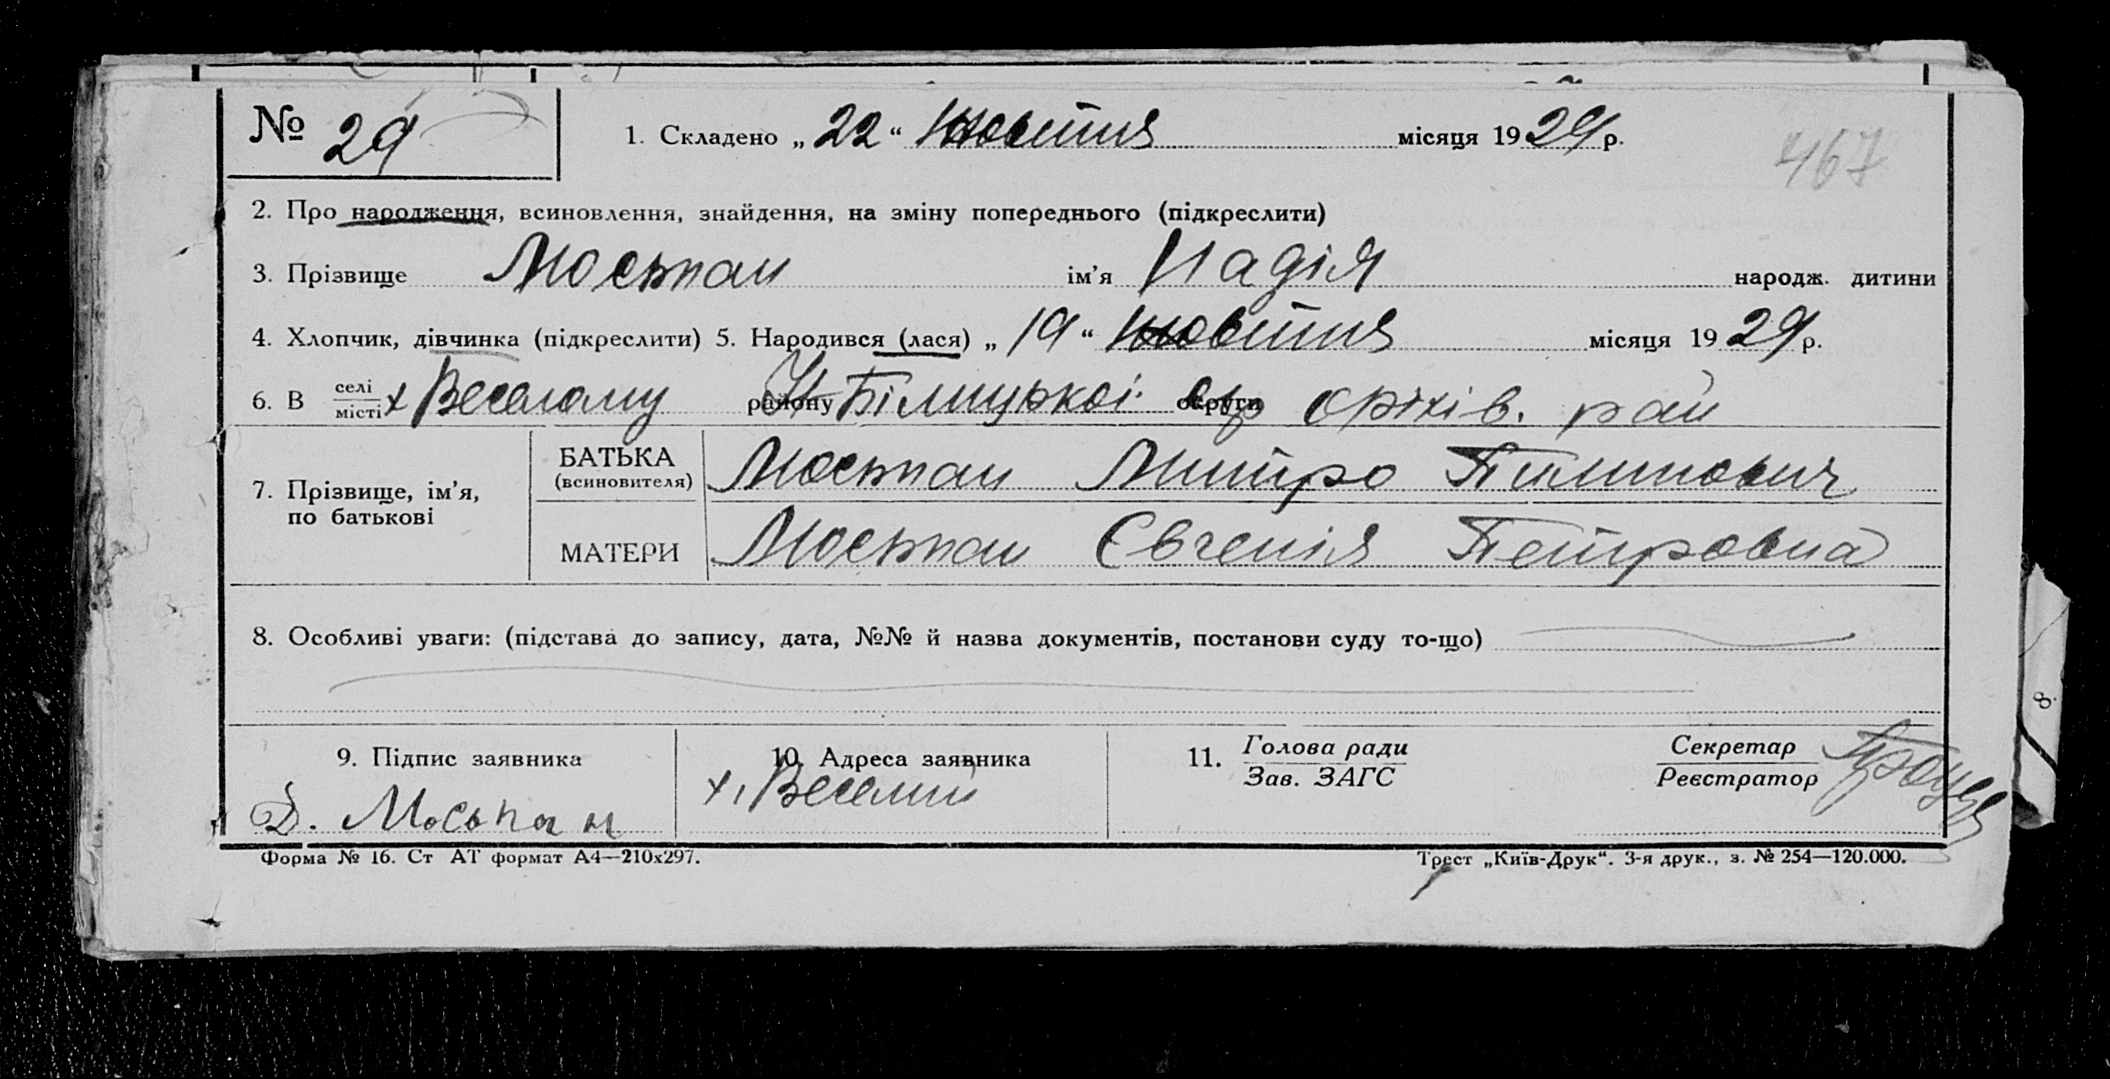 № 29 1. Складено „22“ Жовтня місяця 1929 р.
467
2. Про народження, всиновлення, знайдення, на зміну попереднього (підкреслити)
3. Прізвище Моспан ім'я Надія народж. дитини
4. Хлопчик, дівчинка (підкреслити) 5. Народився (лася) „19“ Жовтня місяця 1929 р.
6. В селі х Веселому району Білицької округи Оріхів. рай
місті
БАТЬКА Моспан Митро Пилипович
(всиновителя)
7. Прізвище, ім'я,
по батькові
МАТЕРИ Моспан Євгенія Петровна
8. Особливі уваги: (підстава до запису, дата, №№ й назва документів, постанови суду то-що)
9. Підпис заявника 10. Адреса заявника 11. Голова ради Секретар
Зав. ЗАГС Реєстратор
Д. Моськан х. Веселий
Форма № 16. Ст АТ формат А4—210х297. Трест „Київ-Друк“. 3-я друк., з. № 254—120.000.
8.